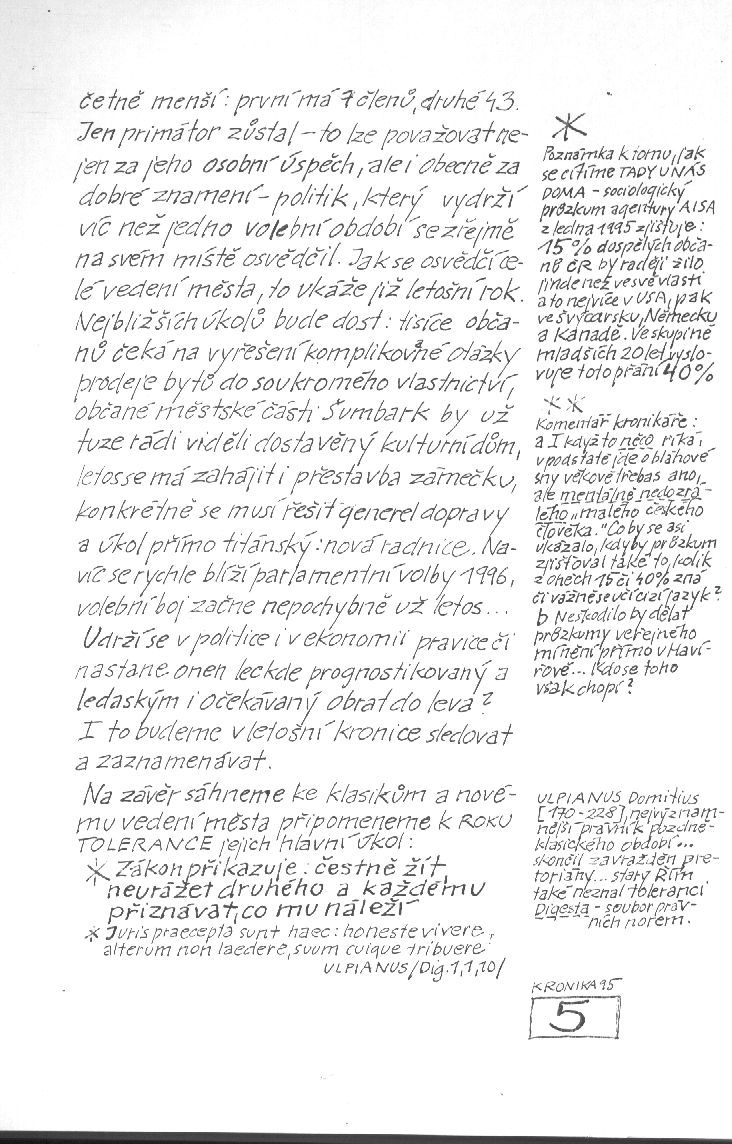 četně menší: první má 7 členů, druhé 43.
Jen primátor zůstal – to lze považovat ne-
jen za jeho osobní úspěch, ale i obecně za
dobré znamení – politik, který vydrží
víc než jedno volební období se zřejmě
na svém místě osvědčil. Jak se osvědčí ce-
lé vedení města, to ukáže již letošní rok.
Nejbližších úkolů bude dost: tisíce obča-
nů čeká na vyřešení komplikovné otázky
prodeje bytů do soukromého vlastnictví,
občané městské části Šumbark by už
tuze rádi viděli dostavěný kulturní dům,
letos se má zahájit i přestavba zámečku,
konkrétně se musí řešit generel dopravy
a úkol přímo titánský: nová radnice. Na-
víc se rychle blíží parlamentní volby 1996,
volební boj začne nepochybně už letos...
Udrží se v politice i v ekonomii pravice či
nastane onen leckde prognostikovaný a
ledaským i očekávaný obrat do leva?
I to budeme v letošní kronice sledovat
a zaznamenávat.
Na závěr sáhneme ke klasikům a nové-
mu vedení města připomeneme k ROKU
TOLERANCE jejich hlavní úkol:
* Zákon přikazuje: čestně žít,
neurážet druhého a každému
přiznávat, co mu náleží
* Juris praecepta sunt haec: honeste vivere,
alterum non laedere, suum cuique tribuere
ULPIANUS/Dig. 1,1,10/
*
Poznámka k tomu, jak
se cítíme TADY U NÁS
DOMA – sociologický
průzkum agentury AISA
z ledna 1995 zjišťuje:
15% dospělých obča-
nů ČR by raději žilo
jinde než ve své vlasti
a to nejvíce v USA, pak
ve Švýcarsku, Německu
a Kanadě. Ve skupině
mladších 20 let vyslo-
vuje toto přání 40%
**
Komentář kronikáře:
a I když to něco říká,
v podstatě jde o bláhové
sny věkově třebas ano,
ale mentálně nedozrá-
lého „malého českého
človëka." Co by se asi
ukázalo, kdyby průzkum
zjišťoval také to, kolik
z oněch 15 či 40% zná
či vážně se učí cizí jazyk?
b Neškodilo by dělat
průzkumy veřejného
mínění přímo v Haví-
řově... Kdo se toho
však chopí?
ULPIANUS Domitius
[170-228], nejvýznam-
nější právník pozdně-
klasického období...
skončil zavražděn pre-
toriány... starý Řím
také neznal toleranci
Digesta – soubor práv-
ních norem.
KRONIKA 95
5